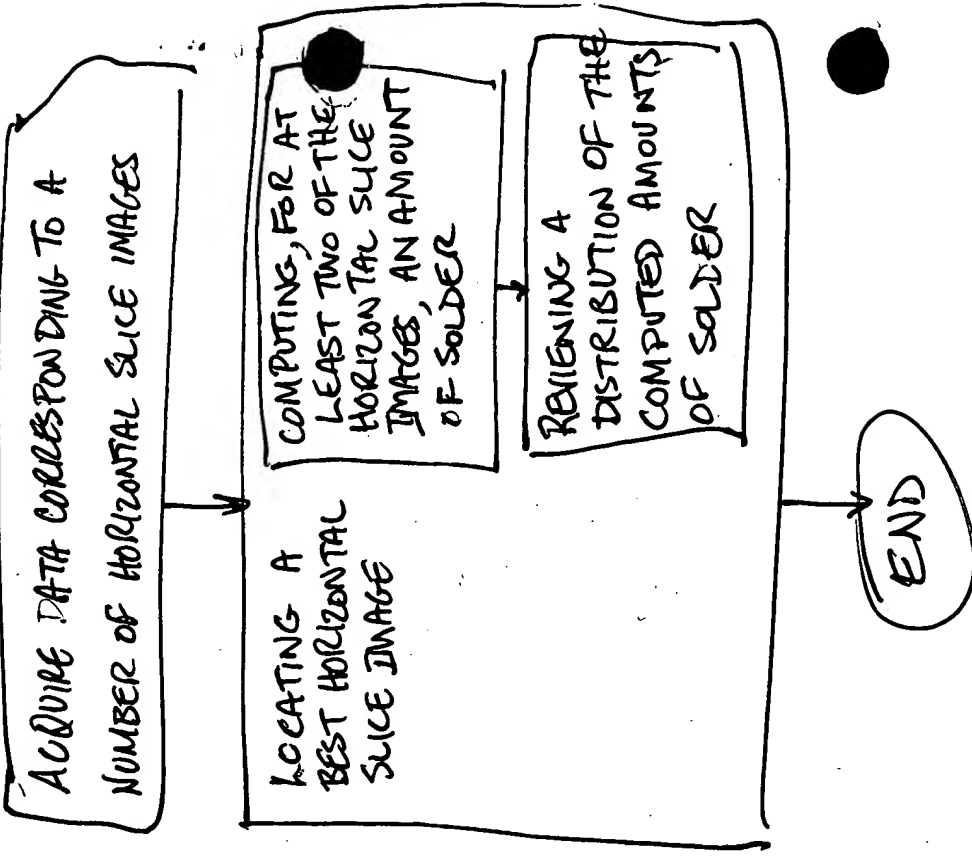 ACQUIRE DATA CORRESPONDING TO A
NUMBER OF HORIZONTAL SLICE IMAGES
LOCATING A
BEST HORIZONTAL
SLICE IMAGE
COMPUTING, FOR AT
LEAST TWO OF THE
HORIZONTAL SLICE
IMAGES, AN AMOUNT
OF SOLDER
REVIEWING A
DISTRIBUTION OF THE
COMPUTED AMOUNTS
OF SOLDER
END